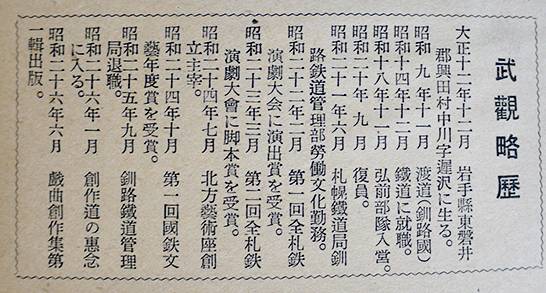 武觀略歷
大正十二年十二月　岩手縣東磐井
郡興田村中川字遲沢に生る。
昭和　九年十一月　渡道(釧路國)
昭和十四年十二月　鐵道に就職。
昭和十八年十一月　弘前部隊入営。
昭和二十年　九月　復員。
昭和二十一年六月　札幌鐵道局釧
路鉄道管理部勞働文化勤務。
昭和二十二年十二月　第一回全札鉄
演劇大会に演出賞を受賞。
昭和二十三年三月　第二回全札鉄
演劇大會に脚本賞を受賞。
昭和二十四年七月　北方藝術座創
立主宰。
昭和二十四年十月　第一回國鉄文
藝年度賞を受賞。
昭和二十五年九月　釧路鐵道管理
局退職。
昭和二十六年一月　創作道の惠念
に入る。
昭和二十六年六月　戲曲創作集第
一輯出版。